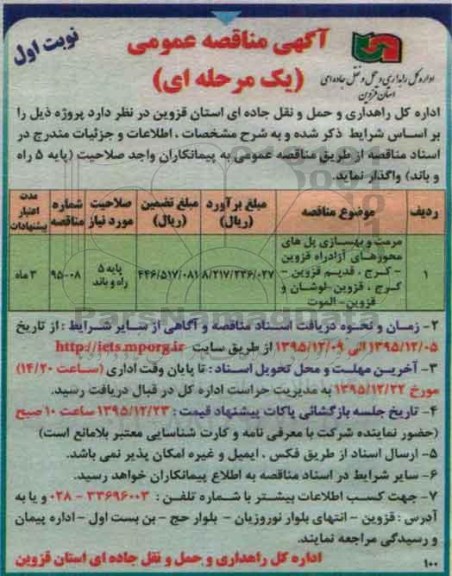 نوبت اول
آگهی مناقصه عمومی
(یک مرحله ای)
اداره کل راهداری و حمل و نقل جاده ای
استان قزوین
اداره کل راهداری و حمل و نقل جاده ای استان قزوین در نظر دارد پروژه ذیل را
بر اساس شرایط ذکر شده و به شرح مشخصات ، اطلاعات و جزئیات مندرج در
اسناد مناقصه از طریق مناقصه عمومی به پیمانکاران واجد صلاحیت (پایه ۵ راه
و باند) واگذار نماید.
ردیف موضوع مناقصه مبلغ برآورد (ریال) مبلغ تضمین (ریال) صلاحیت مورد نیاز شماره مناقصه مدت اعتبار پیشنهادات
۱ مرمت و بهسازی پل های محورهای آزادراه قزوین - کرج ، قدیم قزوین - کرج ، قزوین - لوشان و قزوین - الموت ۸/۲۱۷/۲۳۶/۰۲۷ ۴۴۶/۵۱۷/۰۸۱ پایه ۵ راه و باند ۹۵-۰۸ ۳ ماه
ParsNamadData
۲- زمان و نحوه دریافت اسناد مناقصه و آگاهی از سایر شرایط : از تاریخ
۱۳۹۵/۱۲/۰۵ الی ۱۳۹۵/۱۲/۰۹ از طریق سایت http://iets.mporg.ir
۳- آخرین مهلت و محل تحویل اسناد : تا پایان وقت اداری (ساعت ۱۴/۲۰)
مورخ ۱۳۹۵/۱۲/۲۲ به مدیریت حراست اداره کل در قبال دریافت رسید.
۴- تاریخ جلسه بازگشائی پاکات پیشنهاد قیمت : ۱۳۹۵/۱۲/۲۳ ساعت ۱۰ صبح
(حضور نماینده شرکت با معرفی نامه و کارت شناسایی معتبر بلامانع است)
۵- ارسال اسناد از طریق فکس ، ایمیل و غیره امکان پذیر نمی باشد.
۶- سایر شرایط در اسناد مناقصه به اطلاع پیمانکاران خواهد رسید.
۷- جهت کسب اطلاعات بیشتر با شماره تلفن : ۳۳۶۹۶۰۰۳ - ۰۲۸ و یا به
آدرس : قزوین - انتهای بلوار نوروزیان - بلوار حج - بن بست اول - اداره پیمان
و رسیدگی مراجعه نمایند.
اداره کل راهداری و حمل و نقل جاده ای استان قزوین
۱۰۰